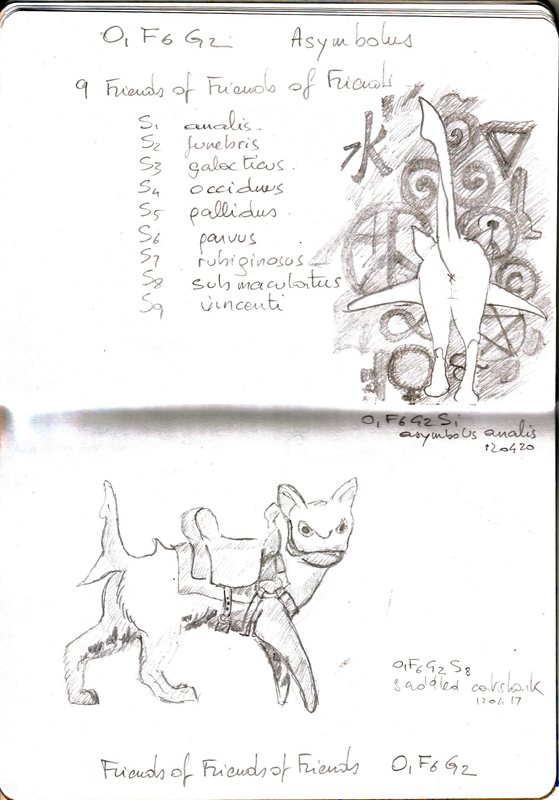 O1 F6 G2 Asymbolus
9 Friends of Friends of Friends
S1 analis.
S2 funebris
S3 galacticus.
S4 occiduus
S5 pallidus.
S6 parvus
S7 rubiginosus
S8 submaculatus
S9 vincenti
水
O1 F6 G2 S1
asymbolus analis
120420
O1 F6 G2 S8
saddled catshark
120417
Friends of Friends of Friends O1 F6 G2